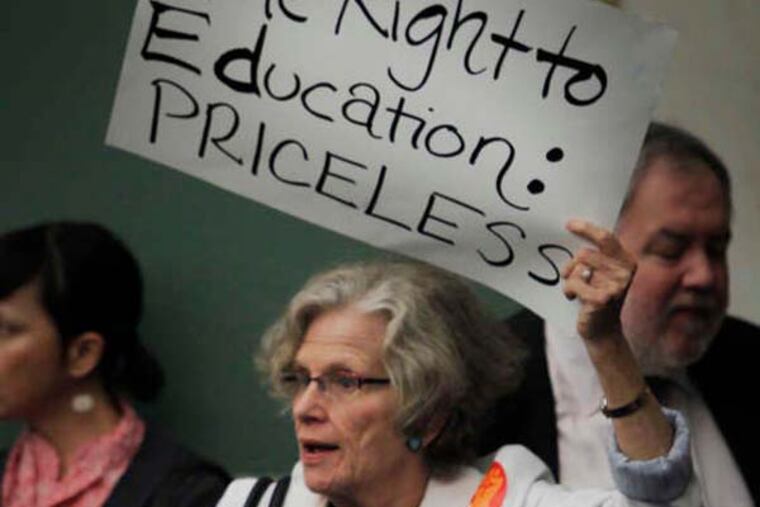 Right to
Education:
PRICELESS